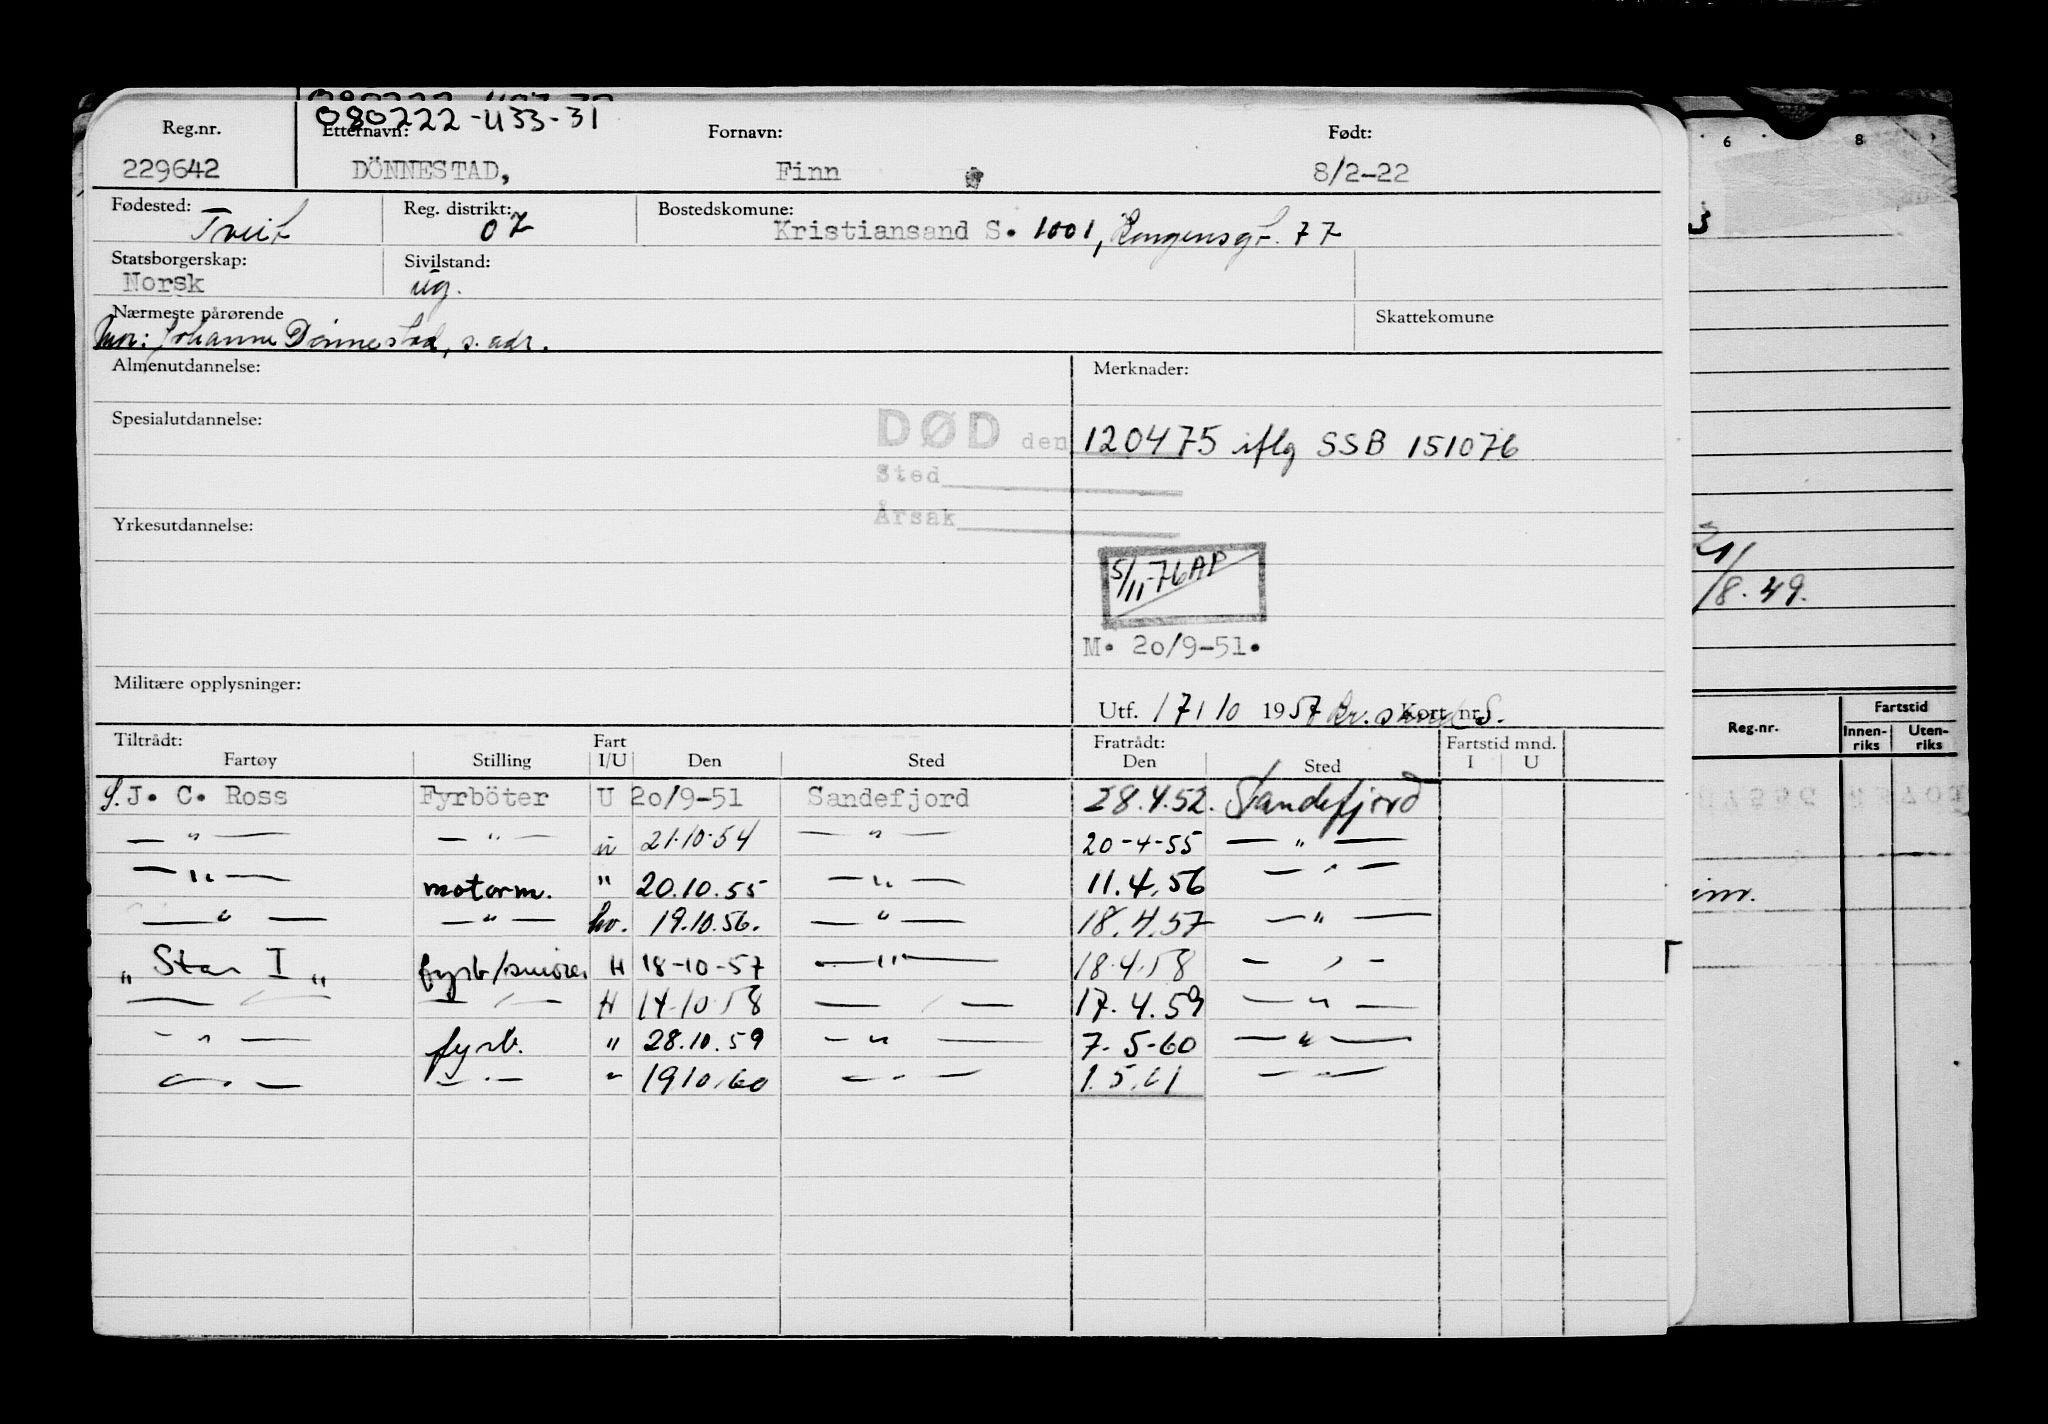 080222-433-31
Reg.nr. Etternavn: Fornavn: Født:
229642 DÖNNESTAD, Finn 8/2-22
Fødested: Reg. distrikt: Bostedskomune:
Tveit 07 Kristiansand S. 1001, Kongensgt. 77
Statsborgerskap: Sivilstand:
Norsk ug.
Nærmeste pårørende Skattekomune
Mor: Johanne Dønnestad, s. adr.
Almenutdannelse: Merknader:
Spesialutdannelse: DØD den 120475 iflg SSB 151076
Sted
Årsak
Yrkesutdannelse:
5/11-76 AP
M. 20/9-51.
Militære opplysninger:
Utf. 17/10 1957 Kr.sand S. Kort nr.
Tiltrådt: Fart Fratrådt: Fartstid mnd.
Fartøy Stilling I/U Den Sted Den Sted I U
S. J. C. Ross Fyrböter U 20/9-51 Sandefjord 28.4.52. Sandefjord
— " — — " — u 21.10.54 — " — 20-4-55 — " —
— " — motorm. " 20.10.55 — " — 11.4.56 — " —
— " — — " — hv. 19.10.56. — " — 18.4.57 — " —
"Star I" fyrb/smører H 18-10-57 — " — 18.4.58 — " —
— " — — " — H 14.10.58 — " — 17.4.59 — " —
— " — fyrb. " 28.10.59 — " — 7.5-60 — " —
— " — — " — " 19.10.60 — " — 1.5.61 — " —
6 8
3
21/
/8.49.
Reg.nr. Fartstid
Innen-riks Uten-riks